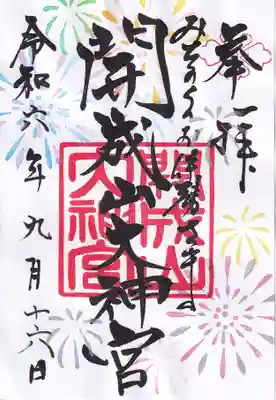 奉拝
みちのくのお伊勢さま
開成山大神宮
令和六年九月十六日
開成山
大神宮